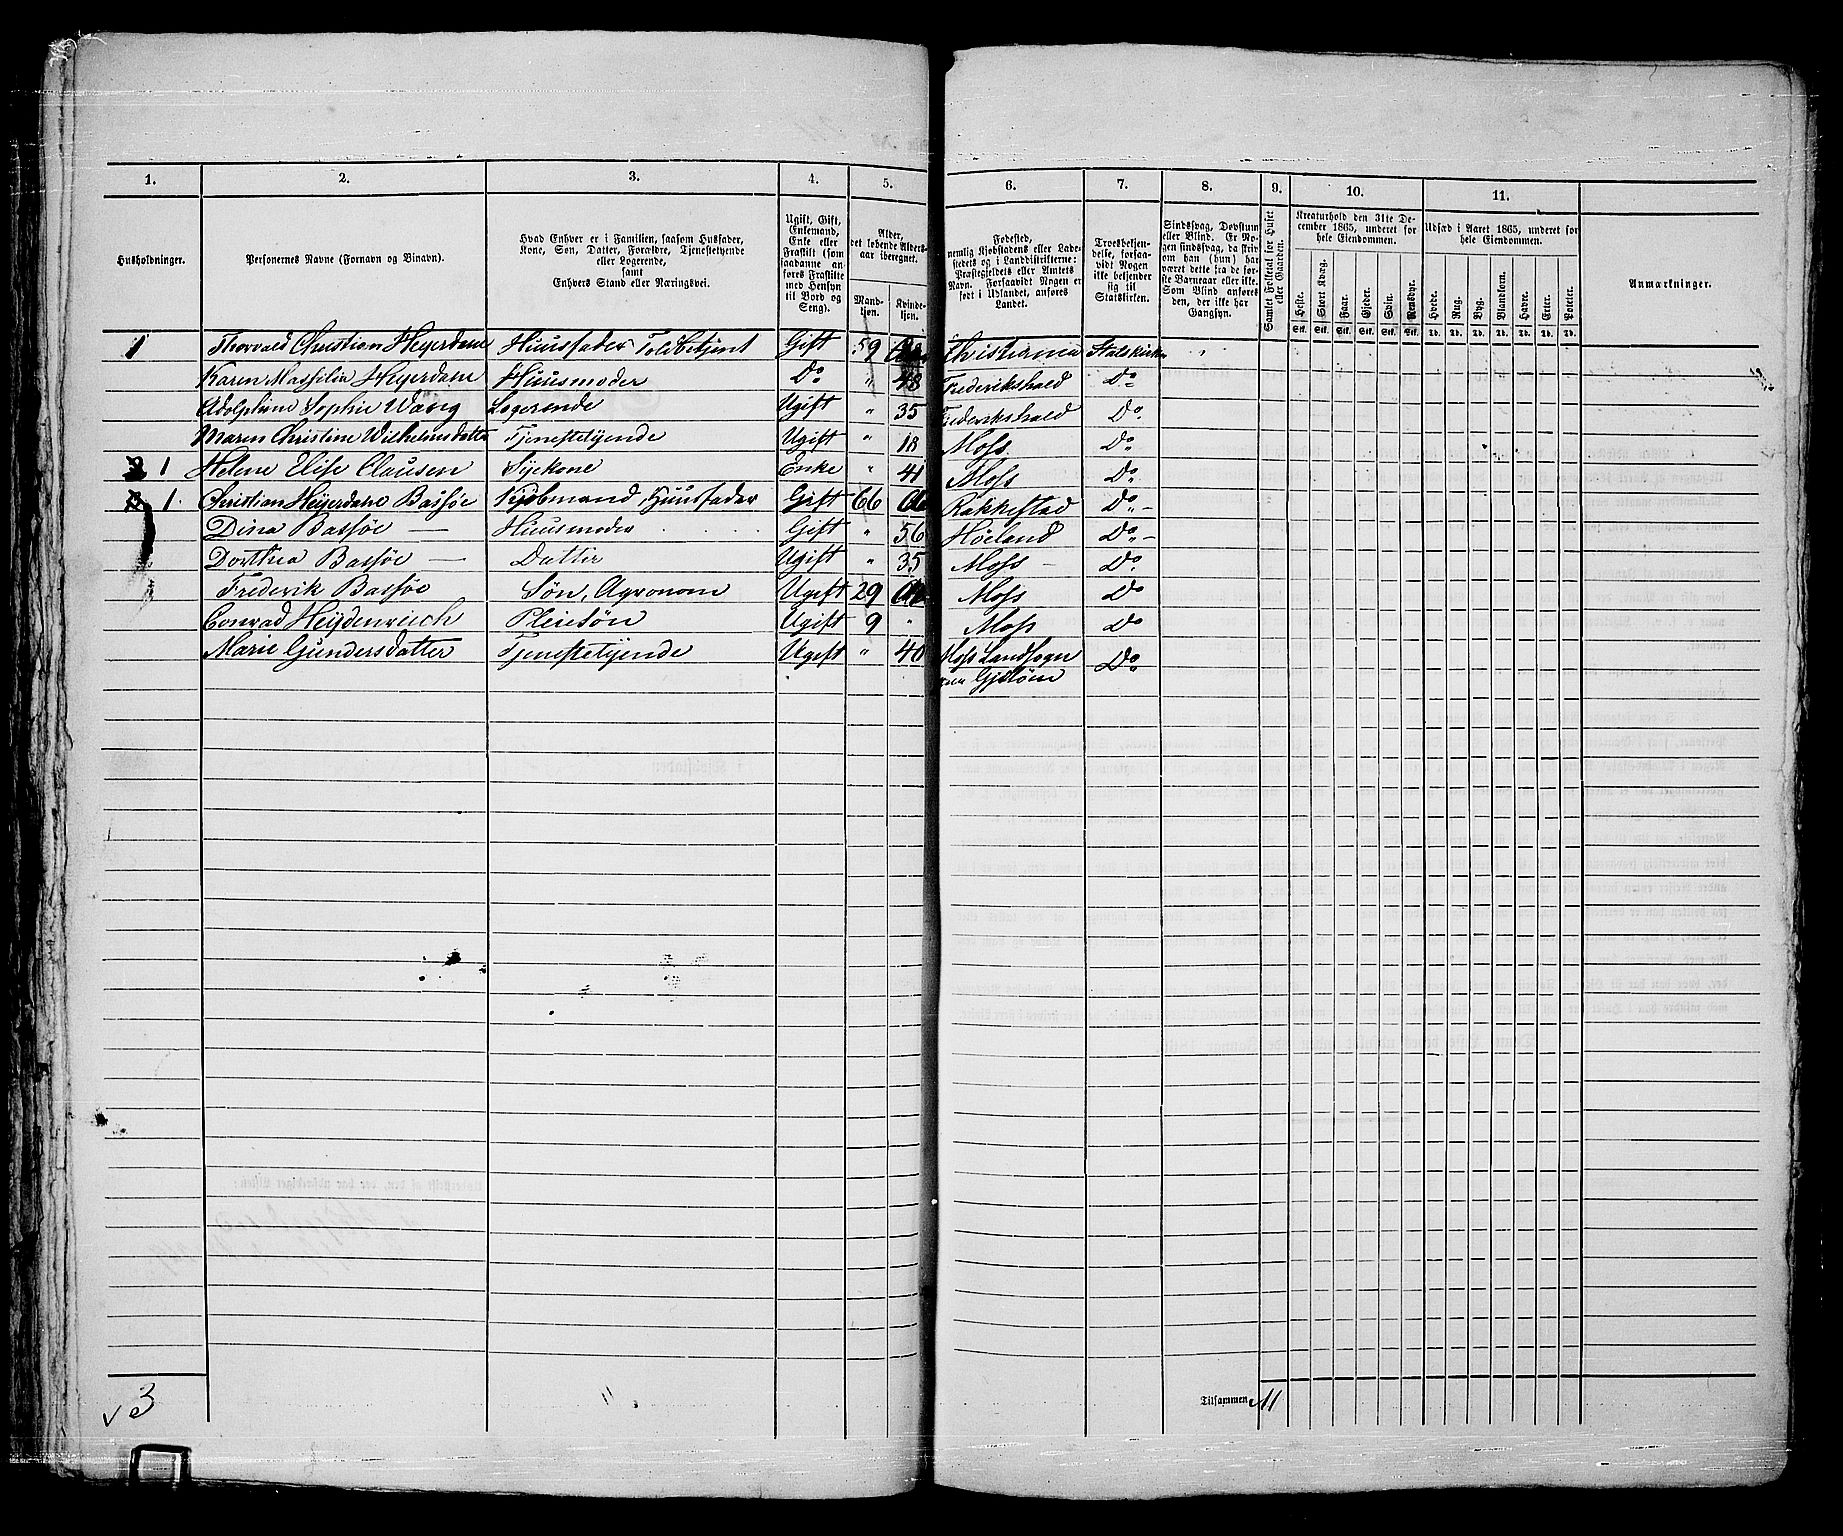 1. 2. 3. 4. 5. 6. 7. 8. 9. 10. 11.
Husholdninger.
Personernes Navne (Fornavn og Binavn).
Hvad Enhver er i Familien, saasom Husfader,
Kone, Søn, Datter, Forældre, Tjenestetyende
eller Logerende,
samt
Enhvers Stand eller Næringsvei.
Ugift, Gift,
Enkemand,
Enke eller
Fraskilt (som
saadanne an-
føres Fraskilte
med Hensyn
til Bord og
Seng).
Alder,
det løbende Alders-
aar iberegnet.
Mand-
kjøn.
Kvinde-
kjøn.
Fødested,
nemlig Kjøbstadens eller Lade-
stedets og i Landdistrikterne:
Præstegjeldets eller Amtets
Navn. Forsaavidt Nogen er
født i Udlandet, anføres
Landet.
Troesbekjen-
delse, forsaa-
vidt Nogen
ikke bekjender
sig til
Statskirken.
Sindssvag, Døvstum
eller Blind. Er No-
gen sindssvag, da skriv
om han (hun) har
været dette fra de før-
ste Barneaar eller ikke.
Som Blind anføres
den, der ikke har
Gangsyn.
Samlet Folketal for Huset
eller Gaarden.
Kreaturhold den 31te De-
cember 1865, underet for
hele Eiendommen.
Heste. Stort Kvæg. Faar. Gjeder. Svin. Rensdyr.
Stk. Stk. Stk. Stk. Stk. Stk.
Udsæd i Aaret 1865, underet for
hele Eiendommen.
Hvede. Rug. Byg. Blandkorn. Havre. Erter. Poteter.
Td. Td. Td. Td. Td. Td. Td.
Anmærkninger.
1 Thorvald Christian Heyerdam Huusfader Toldbetjent Gift 59 Christiania Statskirken
Karen Massilia Heyerdam Huusmoder Do " 48 Frederikshald Do
Adolphine Sophie Wang Logerende Ugift " 35 Frederikshald Do
Maren Christine Wilhelmsdatter Tjenestetyende Ugift " 18 Moss Do
1 Helene Elise Clausen Syekone Enke " 41 Moss Do
1 Christian Heyerdam Bassøe Kjøbmand, Huusfader Gift 66 Rakkestad Do
Dina Bassøe — Huusmoder Gift " 56 Høland Do
Dorthea Bassøe — Datter Ugift " 35 Moss Do
Frederik Bassøe Søn, Agronom Ugift 29 Moss Do
Conrad Heydenreich Pleiesøn Ugift 9 " Moss Do
Marie Gundersdatter Tjenestetyende Ugift " 40 Moss Landsogn Do
3
Tilsammen 11